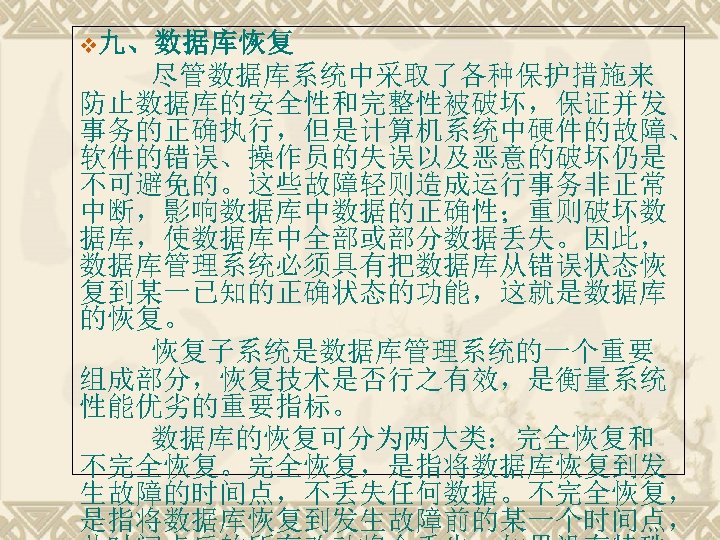 ❖九、数据库恢复
尽管数据库系统中采取了各种保护措施来
防止数据库的安全性和完整性被破坏，保证并发
事务的正确执行，但是计算机系统中硬件的故障、
软件的错误、操作员的失误以及恶意的破坏仍是
不可避免的。这些故障轻则造成运行事务非正常
中断，影响数据库中数据的正确性；重则破坏数
据库，使数据库中全部或部分数据丢失。因此，
数据库管理系统必须具有把数据库从错误状态恢
复到某一已知的正确状态的功能，这就是数据库
的恢复。
恢复子系统是数据库管理系统的一个重要
组成部分，恢复技术是否行之有效，是衡量系统
性能优劣的重要指标。
数据库的恢复可分为两大类：完全恢复和
不完全恢复。完全恢复，是指将数据库恢复到发
生故障的时间点，不丢失任何数据。不完全恢复，
是指将数据库恢复到发生故障前的某一个时间点，